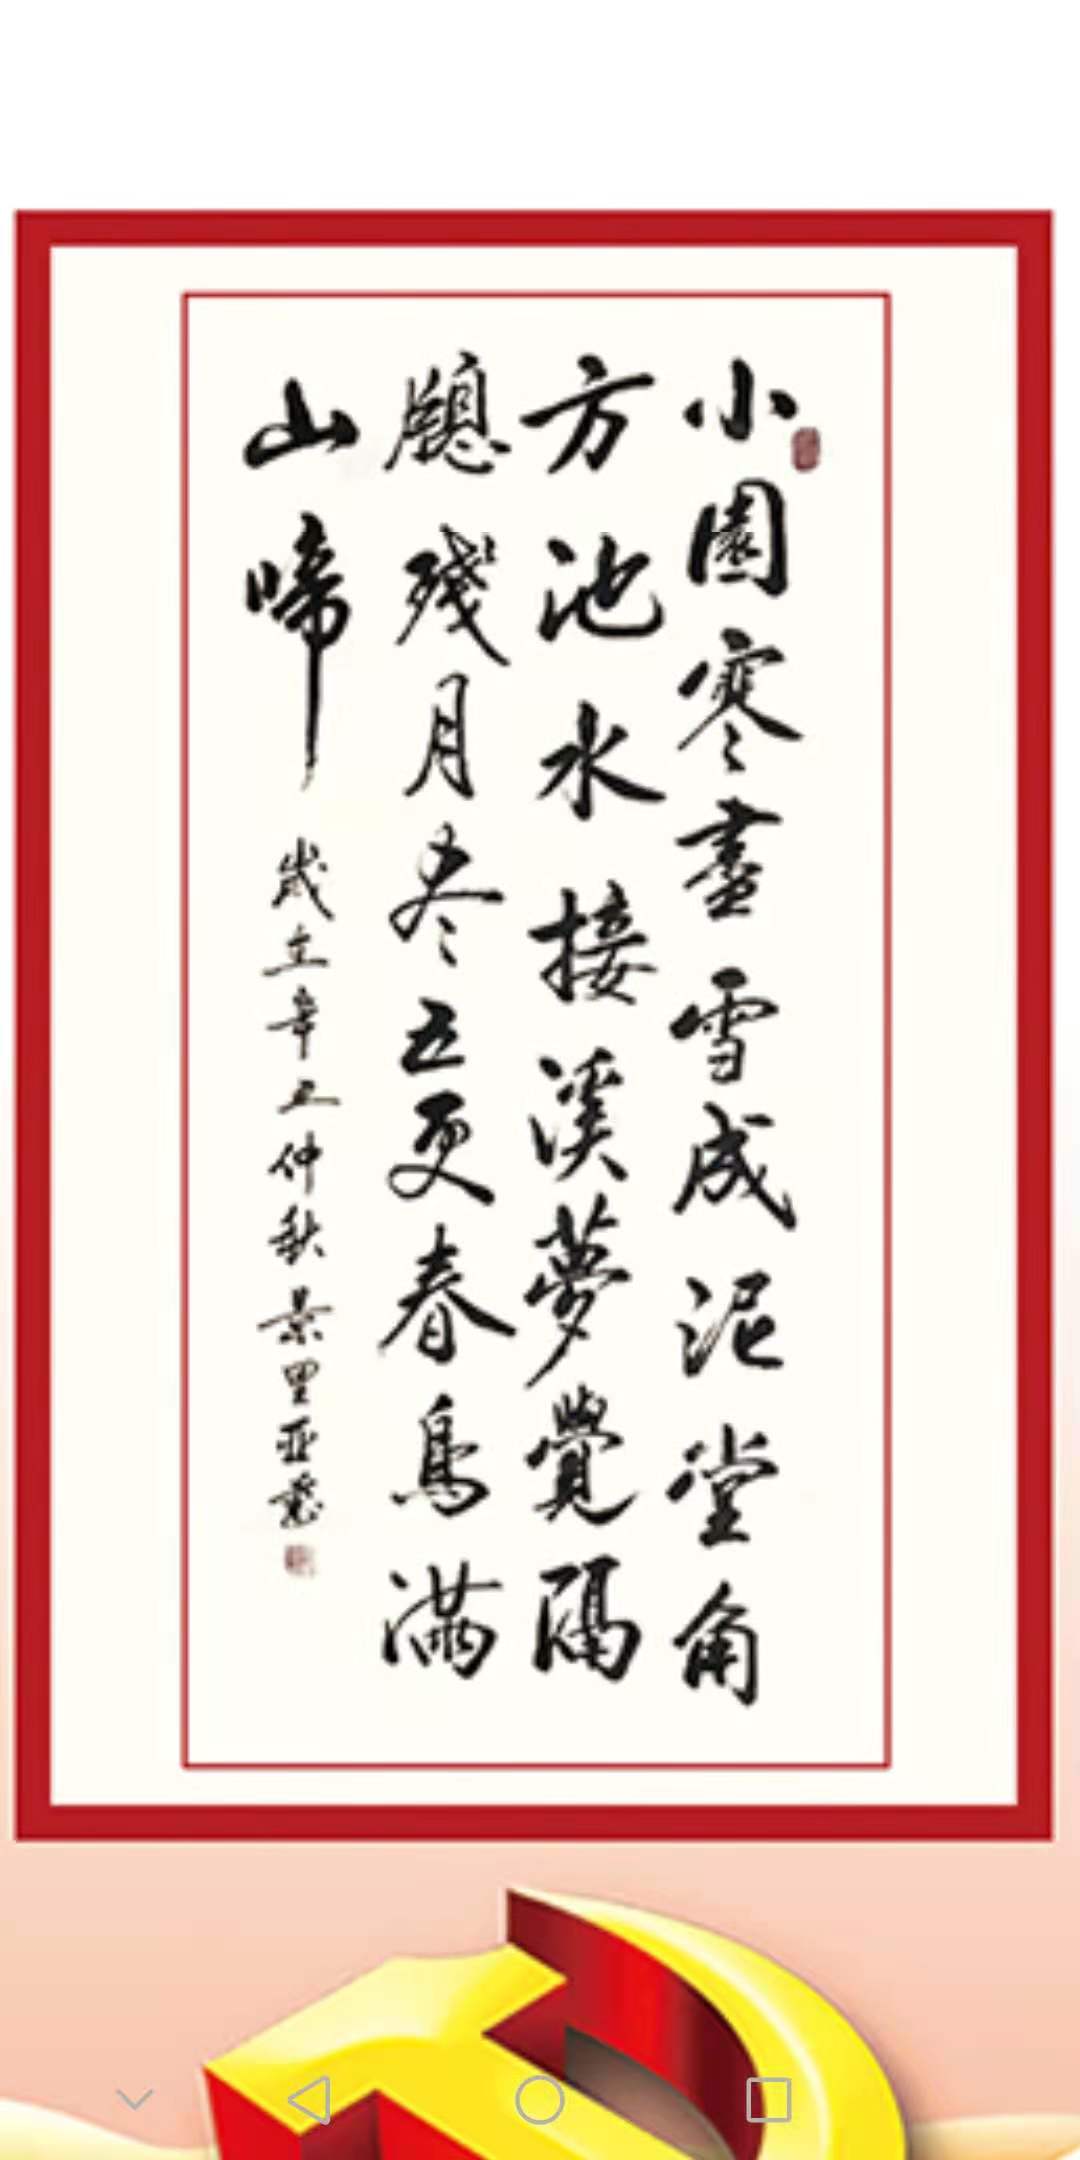 小園寒盡雪成泥堂角
方池水接溪夢覺隔
牕殘月冬五更春鳥滿
山啼
歲立辛丑仲秋景里亚